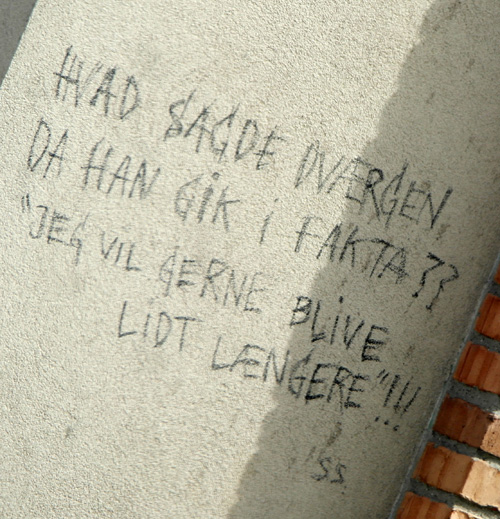 HVAD SAGDE DVÆRGEN,
DA HAN GIK i FAKTA??
"JEG VIL GERNE BLIVE
LIDT LÆNGERE"!!!
'SS